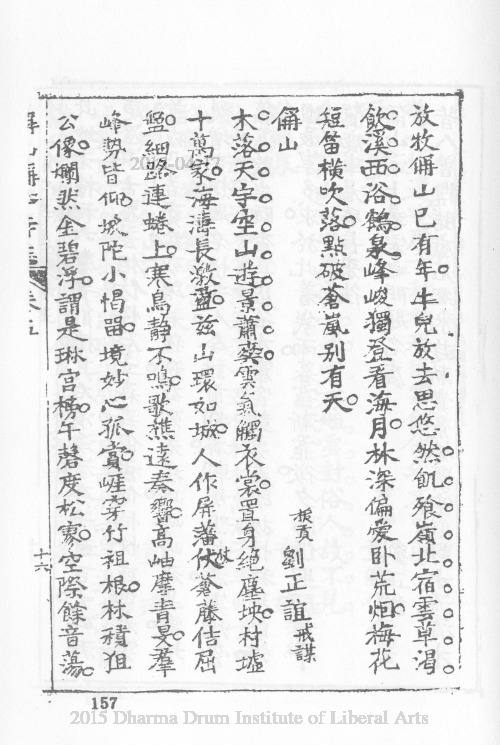 放牧偋山已有年牛兒放去思悠然飢飱嶺北宿雲草渴
飲溪西浴鶴泉峰峻獨登看海月林深偏愛卧荒烟梅花
短笛橫吹落點破蒼嵐別有天
偋山
拔貢劉正誼戒謀
木落天宇空山遊景蕭槃雲氣觸衣裳置身絕塵坱村墟
十萬家海濤長激盪茲山環如城人作屏藩伏蒼藤佶屈
盤細路連蜷上寒鳥靜不鳴歌樵遠奏響高岫摩青旻羣
峰勢皆仰坡陀小憩畱境妙心孤賞崕穿竹祖根林積狙
公像爛然金碧浮謂是琳宮榜午磬度松寥空際餘音蕩
卷五
十六
157
2015 Dharma Drum Institute of Liberal Arts